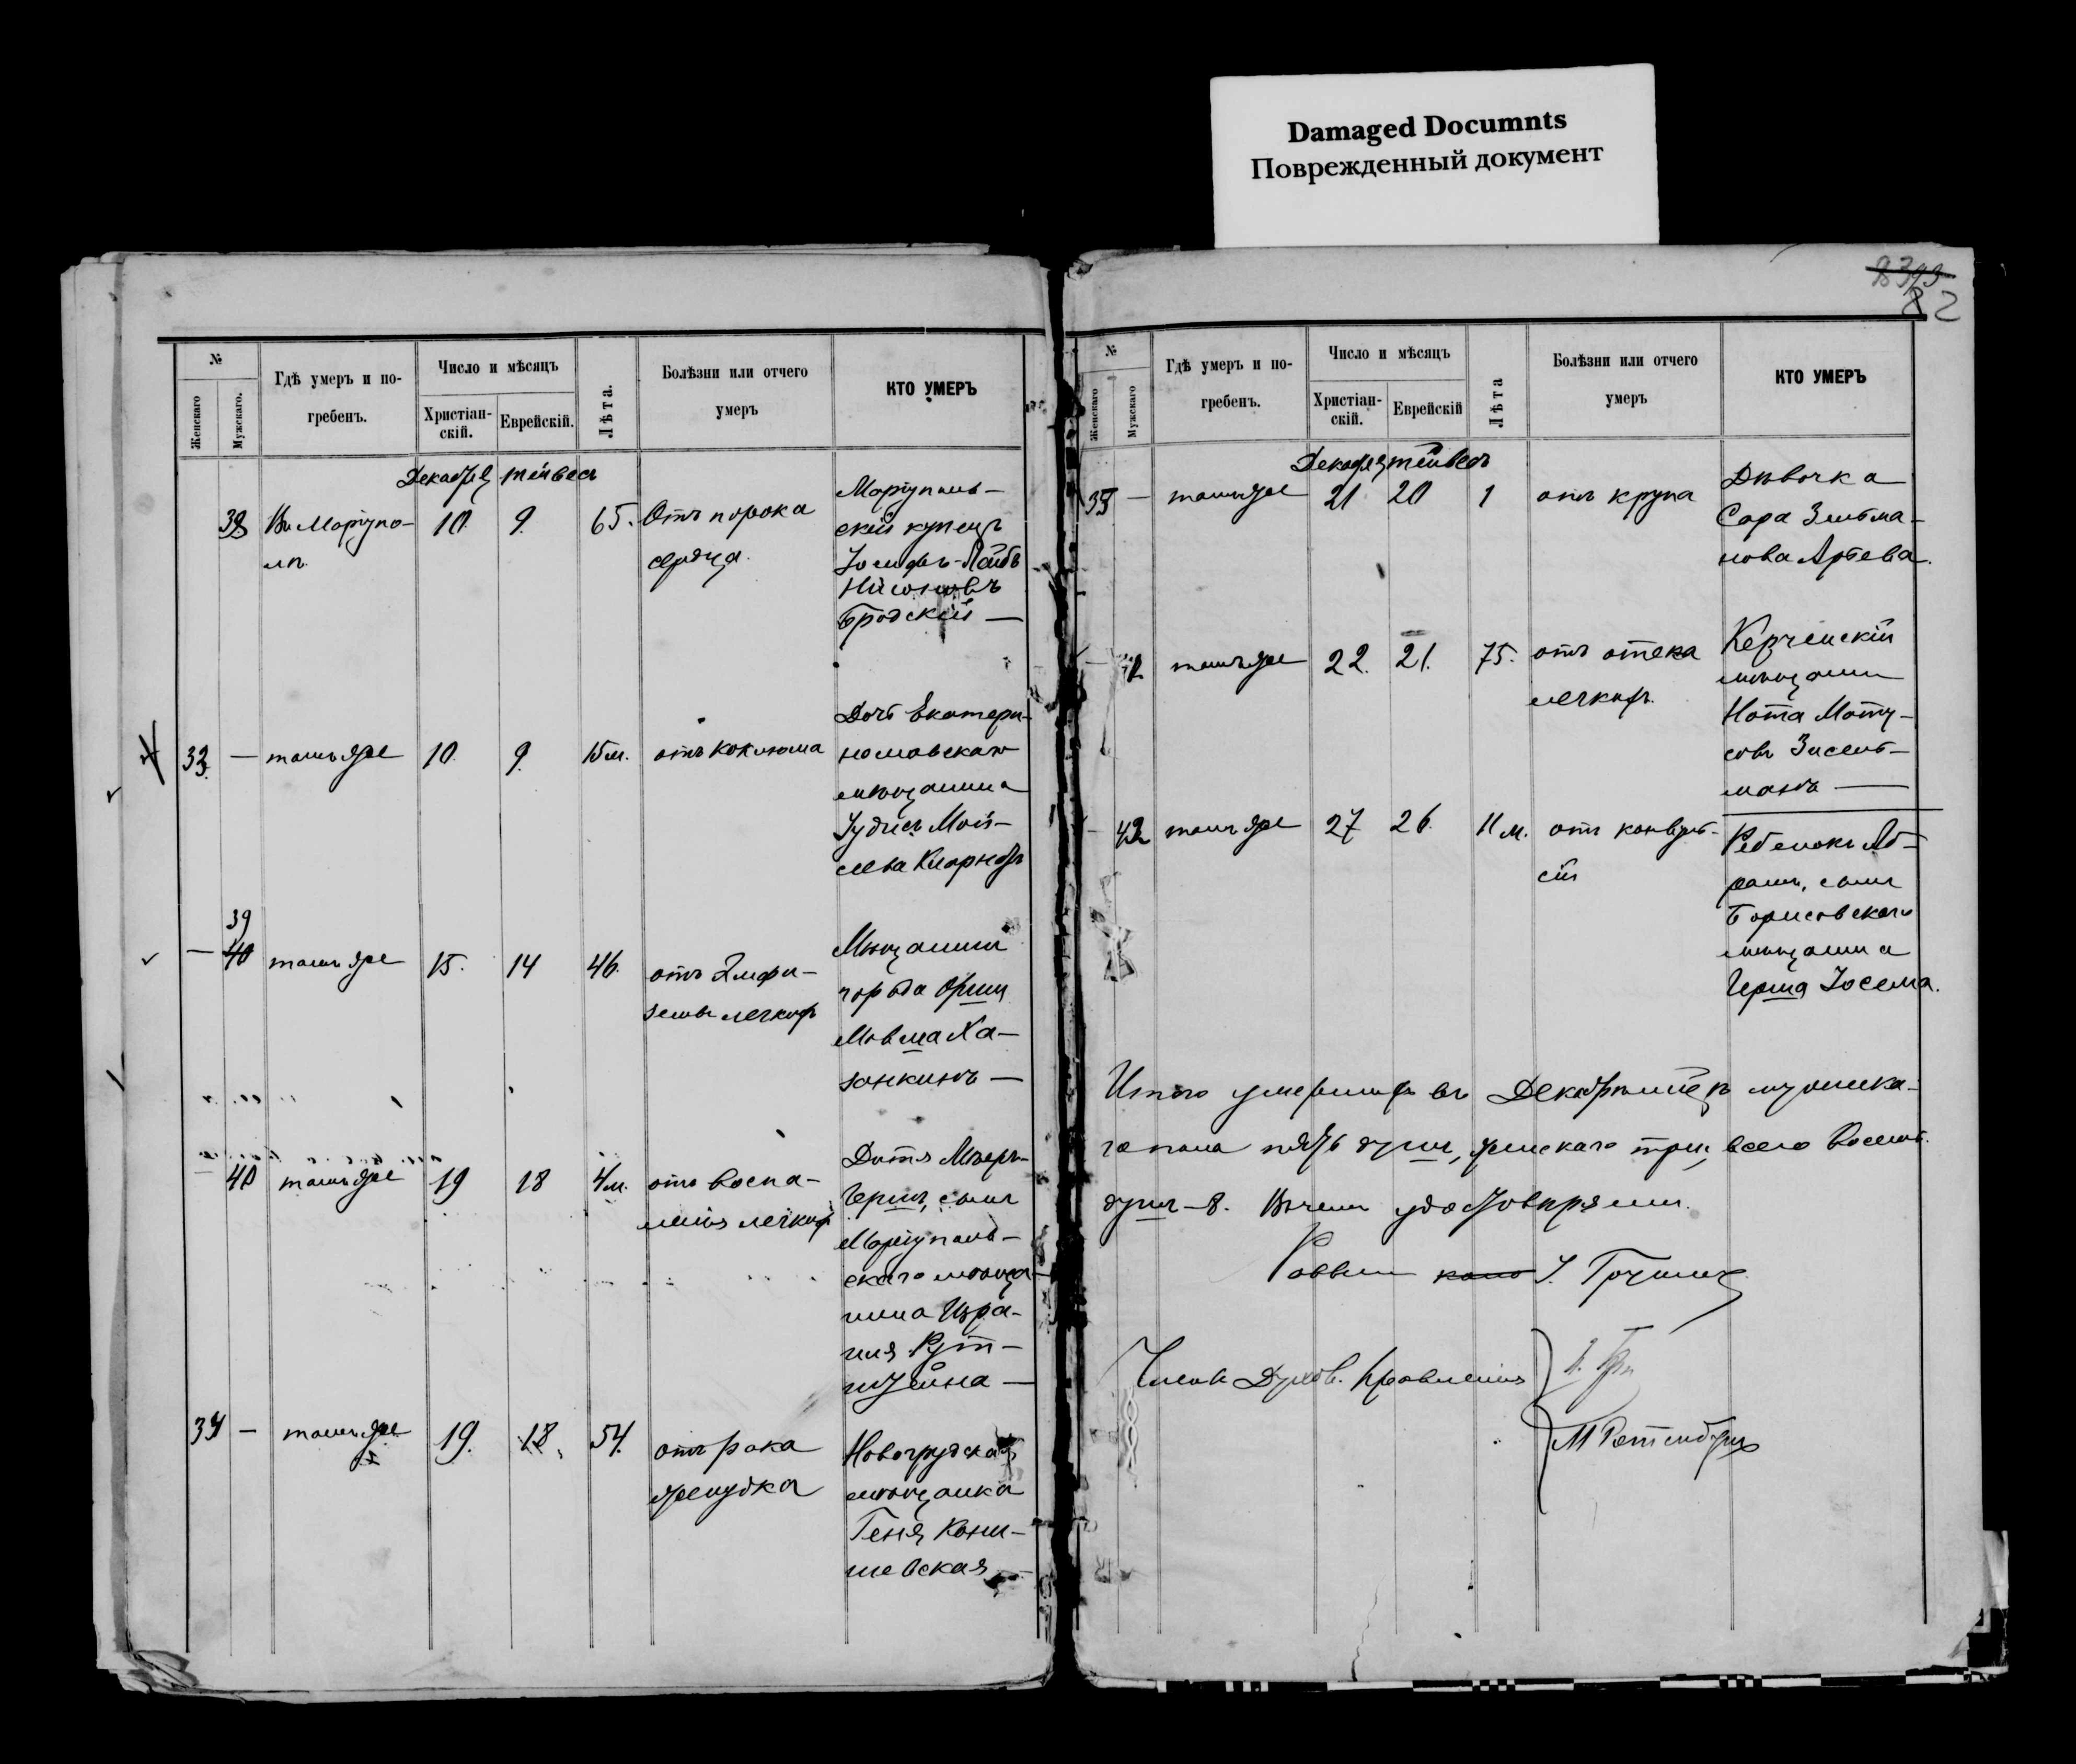 Damaged Documnts
Поврежденный документ
82
№
Женскаго
Мужскаго.
Гдѣ умеръ и по-
гребенъ.
Число и мѣсяцъ
Христіан-
скій.
Еврейскій.
Лѣта.
Болѣзни или отчего
умеръ
КТО УМЕРЪ
Декабрь тейвесъ
38 Въ Маріупо- 10. 9. 65. Отъ порока
лѣ сердца.
Маріуполь-
скій купецъ
Іосифъ-Лейбъ
Нисоновъ
Бродскій —
33. — тамъ же 10. 9. 15 м. отъ коклюша
Дочь Екатери-
нославскаго
мѣщанина
Іудись Мой-
сеева
— 39
40 тамъ же 15. 14 46. отъ Эмфи-
земы легкихъ
Мѣщанинъ
города Орши
Мовша Ха-
занкинъ —
— 40 тамъ же 19 18 4 м. отъ воспа-
ленія легкихъ
Дитя Мееръ-
Гершъ, сынъ
Маріуполь-
скаго мѣща-
нина Изра-
иля Рут-
штейна —
34 — тамъ же 19. 18. 54. отъ рака
желудка
Новогрудская
мѣщанка
Геня Кони-
шевская —
№
Женскаго
Мужскаго
Гдѣ умеръ и по-
гребенъ.
Число и мѣсяцъ
Христіан-
скій.
Еврейскій
Лѣта
Болѣзни или отчего
умеръ
КТО УМЕРЪ
Декабрь тейвесъ
35 — тамъ же 21 20 1 отъ крупа
Дѣвочка
Сара Зельма-
нова Арьева.
— тамъ же 22. 21. 75. отъ отека
легкихъ.
Керченскій
мѣщанинъ
Нота Моту-
совъ Зисель-
манъ —
— 42 тамъ же 27 26. 11 м. отъ конвуль-
сій
Ребенокъ Аб-
рамъ, сынъ
Борисовскаго
мѣщанина
Герша Іосема.
Итого умершихъ въ Декабрѣ м-цѣ мужска-
го пола пять душъ, женскаго три, всего восемь
душъ — 8. Въ чемъ удостовѣряемъ.
Раввинъ І.
Члены Духов. Правленія
М